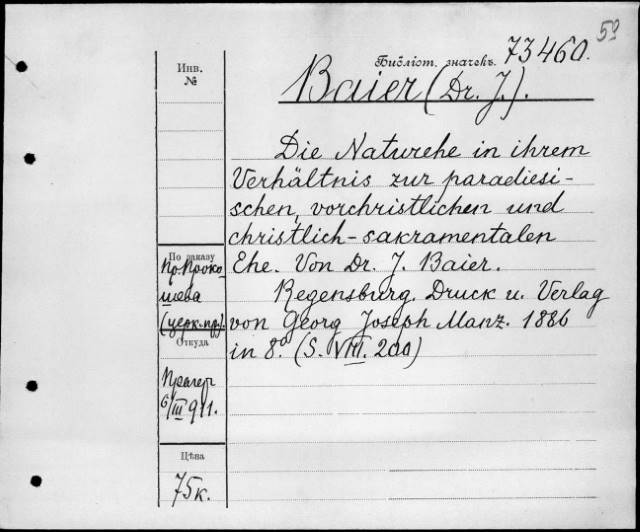 5º
Инв.
№
Библіот. значекъ. 73460.
Baier (Dr. J.).
Die Naturehe in ihrem
Verhältnis zur paradiesi-
schen, vorchristlichen und
christlich-sakramentalen
Ehe. Von Dr. J. Baier.
Regensburg. Druck u. Verlag
von Georg Joseph Manz. 1886
in 8º. (S. VIII. 200)
По заказу
Пр. Проко-
шева
(церк. пр.)
Откуда
Прагеръ
6/III 911.
Цѣна
75 к.